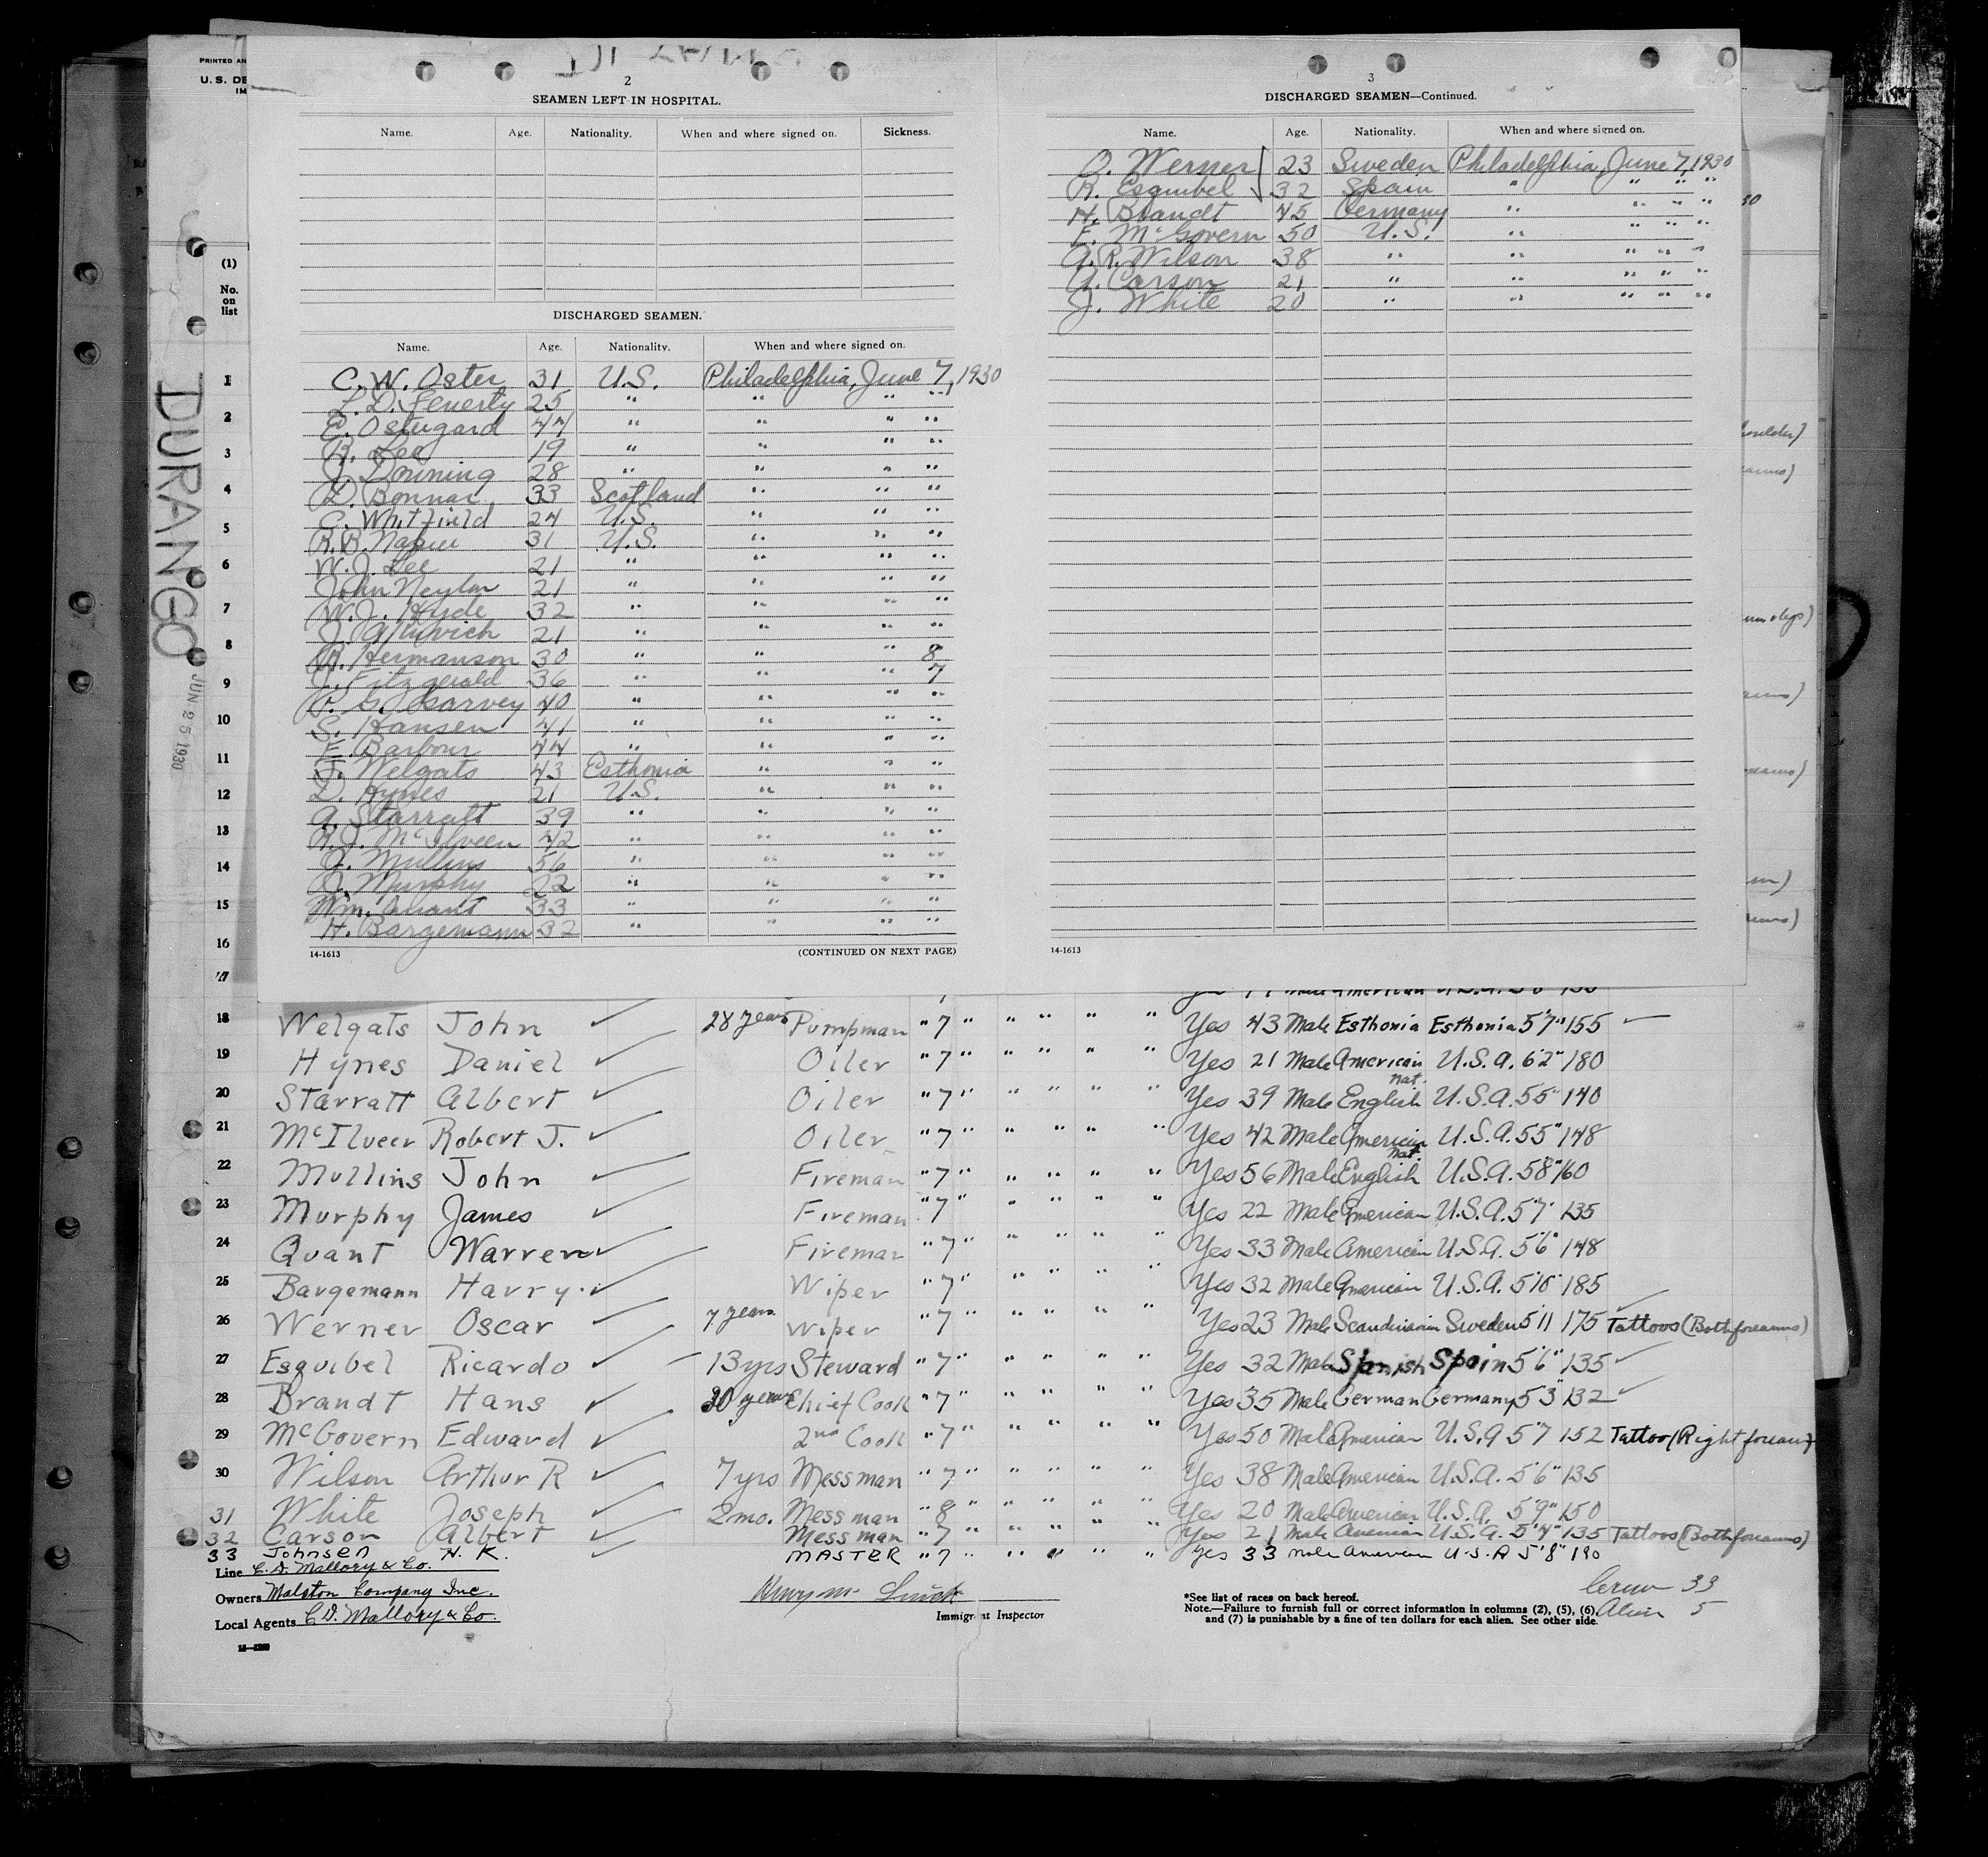 PRINTED AN
U. S. DE
IM
(1)
No.
on
list
DURANGO
JUN 25 1930
2
SEAMEN LEFT IN HOSPITAL.
Name. Age. Nationality. When and where signed on. Sickness.
DISCHARGED SEAMEN.
Name. Age. Nationality. When and where signed on.
C. W. Oster 31 U.S. Philadelphia, June 7, 1930
L. D. Fenerty 25 " " " "
E. Ostergard 44 " " " "
R. Lee 19 " " " "
J. Downing 28 " " " "
D. Bonnar 33 Scotland " " "
C. Whitfield 24 U.S. " " "
R. B. Napier 31 U.S. " " "
W. J. Lee 21 " " " "
John Neylan 21 " " " "
W. J. Hyde 32 " " " "
J. 21 " " " "
H. Hermanson 30 " " " 8
J. Fitzgerald 36 " " " 7
P. G. Garvey 40 " " " "
S. Hansen 41 " " " "
E. Barbour 44 " " " "
J. Welgats 43 Esthonia " " "
D. Hynes 21 U.S. " " "
A. Starratt 39 " " " "
R. J. McIlveen 42 " " " "
J. Mullins 56 " " " "
J. Murphy 22 " " " "
Wm. Quant 33 " " " "
H. Bargemann 32 " " " "
14-1613 (CONTINUED ON NEXT PAGE)
3
DISCHARGED SEAMEN—Continued.
Name. Age. Nationality. When and where signed on.
O. Werner 23 Sweden Philadelphia, June 7, 1930
R. Esquibel 32 Spain " " " "
H. Brandt 45 Germany " " " "
E. McGovern 50 U.S. " " " "
A. R. Wilson 38 " " " " "
A. Carson 21 " " " " "
J. White 20 " " " " "
14-1613
1
2
3
4
5
6
7
8
9
10
11
12
13
14
15
16
17
18 Welgats John 28 years Pumpman " 7 " " " " " Yes 43 Male Esthonia Esthonia 5'7" 155
19 Hynes Daniel Oiler " 7 " " " " " Yes 21 Male American U.S.A. 6'2" 180
20 Starratt Albert Oiler " 7 " " " " " Yes 39 Male nat. English U.S.A. 5'5" 140
21 McIlveen Robert J. Oiler " 7 " " " " " Yes 42 Male American U.S.A. 5'5" 148
22 Mullins John Fireman " 7 " " " " " Yes 56 Male nat. English U.S.A. 5'8" 160
23 Murphy James Fireman " 7 " " " " " Yes 22 Male American U.S.A. 5'7" 135
24 Quant Warren Fireman " 7 " " " " " Yes 33 Male American U.S.A. 5'6" 148
25 Bargemann Harry Wiper " 7 " " " " " Yes 32 Male American U.S.A. 185
26 Werner Oscar 7 years Wiper " 7 " " " " " Yes 23 Male Scandinavian Sweden 5'11 175 Tattoos (Both forearms)
27 Esquibel Ricardo 13 yrs Steward " 7 " " " " " Yes 32 Male Spanish Spain 5'6" 135
28 Brandt Hans 20 years Chief Cook " 7 " " " " " Yes 35 Male German Germany 5'3 132
29 McGovern Edward 2nd Cook " 7 " " " " " Yes 50 Male American U.S.A 5'7 152 Tattoo (Right forearm)
30 Wilson Arthur R 7 yrs Messman " 7 " " " " " Yes 38 Male American U.S.A. 5'6" 135
31 White Joseph 2 mo. Messman " 8 " " " " " Yes 20 Male American U.S.A. 5'9" 150
32 Carson Albert Messman " 7 " " " " " Yes 21 Male American U.S.A. 5'4" 135 Tattoos (Both forearms)
33 Johnsen N. K. MASTER " 7 " " " " " Yes 33 male American U.S.A 5'8" 190
Line C. D. Mallory & Co.
Owners Malston Company Inc.
Local Agents C D. Mallory & Co.
Immigrant Inspector
*See list of races on back hereof.
Note.—Failure to furnish full or correct information in columns (2), (5), (6),
and (7) is punishable by a fine of ten dollars for each alien. See other side.
Crew 33
Alien 5